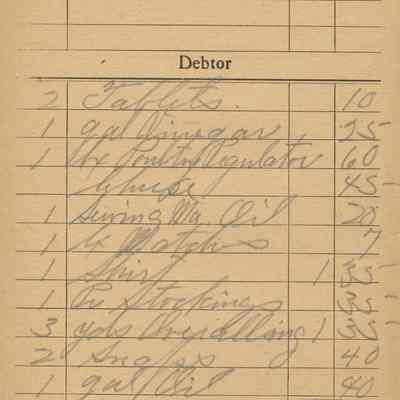 Debtor
2 Tablets. 10
1 gal Vinegar, 25
1 bx Poultry Regulator 60
Cheese 45
1 Sewing Ma. Oil 20
1 bx Matches 7
1 Shirt 1 35
1 Pr Stockings 35
3 yds Overalling 1 35
2 40
1 gal Oil 40